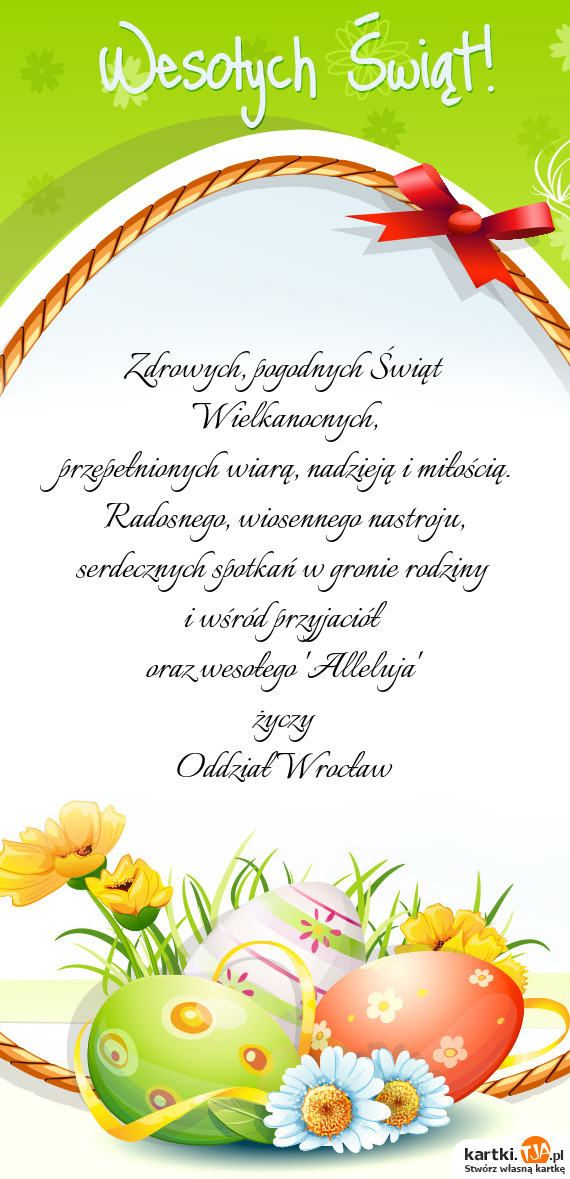 Wesołych Świąt!
Zdrowych, pogodnych Świąt
Wielkanocnych,
przepełnionych wiarą, nadzieją i miłością.
Radosnego, wiosennego nastroju,
serdecznych spotkań w gronie rodziny
i wśród przyjaciół
oraz wesołego 'Alleluja'
życzy
Oddział Wrocław
kartki.TJA.pl
Stwórz własną kartkę